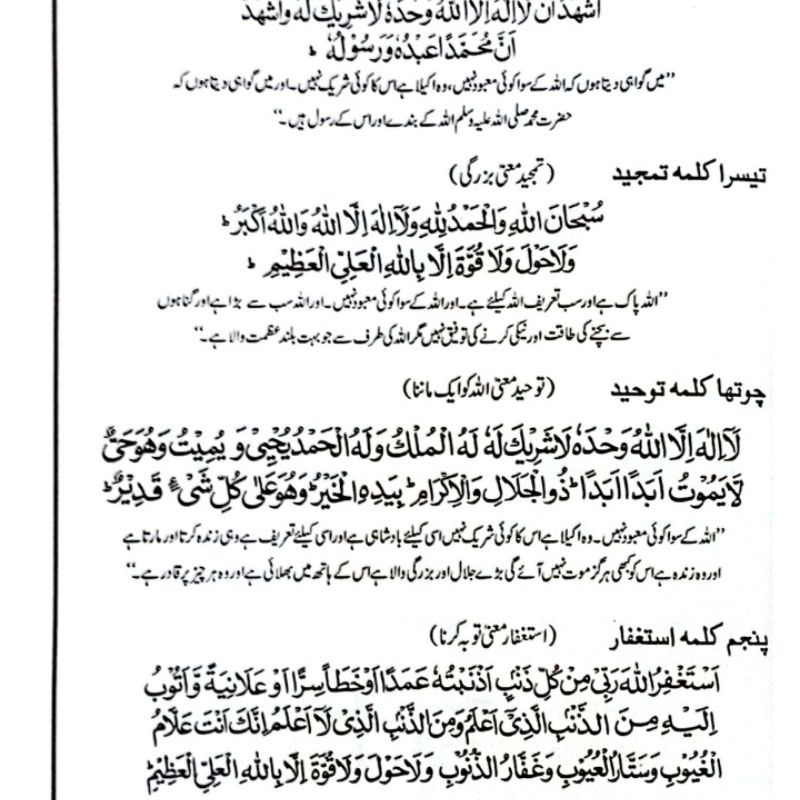 اَشْهَدُ اَنْ لَّا اِلٰهَ اِلَّا اللهُ وَحْدَهٗ لَا شَرِيْكَ لَهٗ وَاَشْهَدُ
اَنَّ مُحَمَّدًا عَبْدُهٗ وَرَسُوْلُهٗ ؕ
”میں گواہی دیتا ہوں کہ اللہ کے سوا کوئی معبود نہیں، وہ اکیلا ہے اس کا کوئی شریک نہیں۔ اور میں گواہی دیتا ہوں کہ
حضرت محمد صلی اللہ علیہ وسلم اللہ کے بندے اور اس کے رسول ہیں۔“
تیسرا کلمہ تمجید (تمجید معنی بزرگی)
سُبْحَانَ اللهِ وَالْحَمْدُ لِلّٰهِ وَلَآ اِلٰهَ اِلَّا اللهُ وَاللهُ اَكْبَرُ ؕ
وَلَا حَوْلَ وَلَا قُوَّةَ اِلَّا بِاللهِ الْعَلِيِّ الْعَظِيْمِ ؕ
”اللہ پاک ہے اور سب تعریف اللہ کیلئے ہے۔ اور اللہ کے سوا کوئی معبود نہیں۔ اور اللہ سب سے بڑا ہے اور گناہوں
سے بچنے کی طاقت اور نیکی کرنے کی توفیق نہیں مگر اللہ کی طرف سے جو بہت بلند عظمت والا ہے۔“
چوتھا کلمہ توحید (توحید معنی اللہ کو ایک ماننا)
لَآ اِلٰهَ اِلَّا اللهُ وَحْدَهٗ لَا شَرِيْكَ لَهٗ لَهُ الْمُلْكُ وَلَهُ الْحَمْدُ يُحْيِيْ وَ يُمِيْتُ وَهُوَ حَيٌّ
لَّا يَمُوْتُ اَبَدًا اَبَدًا ؕ ذُو الْجَلَالِ وَالْاِكْرَامِ ؕ بِيَدِهِ الْخَيْرُ ؕ وَهُوَ عَلٰى كُلِّ شَيْءٍ قَدِيْرٌ ؕ
”اللہ کے سوا کوئی معبود نہیں۔ وہ اکیلا ہے اس کا کوئی شریک نہیں اسی کیلئے بادشاہی ہے اور اسی کیلئے تعریف ہے وہی زندہ کرتا اور مارتا ہے
اور وہ زندہ ہے اس کو کبھی ہرگز موت نہیں آئے گی بڑے جلال اور بزرگی والا ہے اس کے ہاتھ میں بھلائی ہے اور وہ ہر چیز پر قادر ہے۔“
پنجم کلمہ استغفار (استغفار معنی توبہ کرنا)
اَسْتَغْفِرُ اللهَ رَبِّيْ مِنْ كُلِّ ذَنْبٍ اَذْنَبْتُهٗ عَمَدًا اَوْ خَطَأً سِرًّا اَوْ عَلَانِيَةً وَّاَتُوْبُ
اِلَيْهِ مِنَ الذَّنْبِ الَّذِيْ اَعْلَمُ وَمِنَ الذَّنْبِ الَّذِيْ لَآ اَعْلَمُ اِنَّكَ اَنْتَ عَلَّامُ
الْغُيُوْبِ وَسَتَّارُ الْعُيُوْبِ وَغَفَّارُ الذُّنُوْبِ وَلَا حَوْلَ وَلَا قُوَّةَ اِلَّا بِاللهِ الْعَلِيِّ الْعَظِيْمِ ؕ